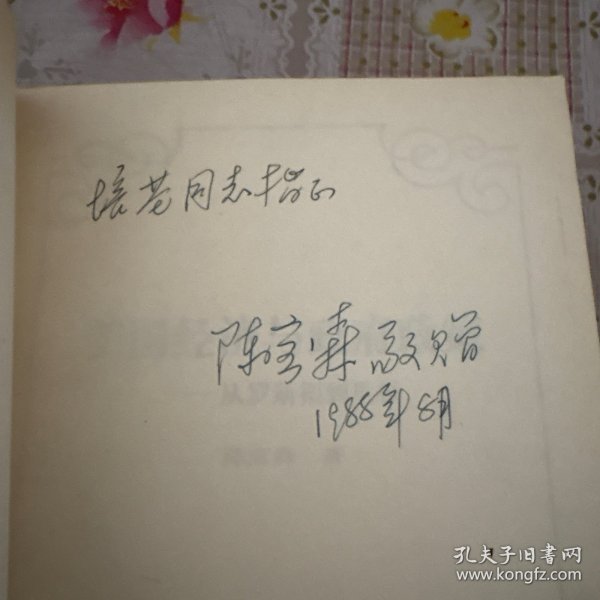 培芝同志指正
陈宝森敬赠
1988年8月
孔夫子旧书网
www.kongfz.com